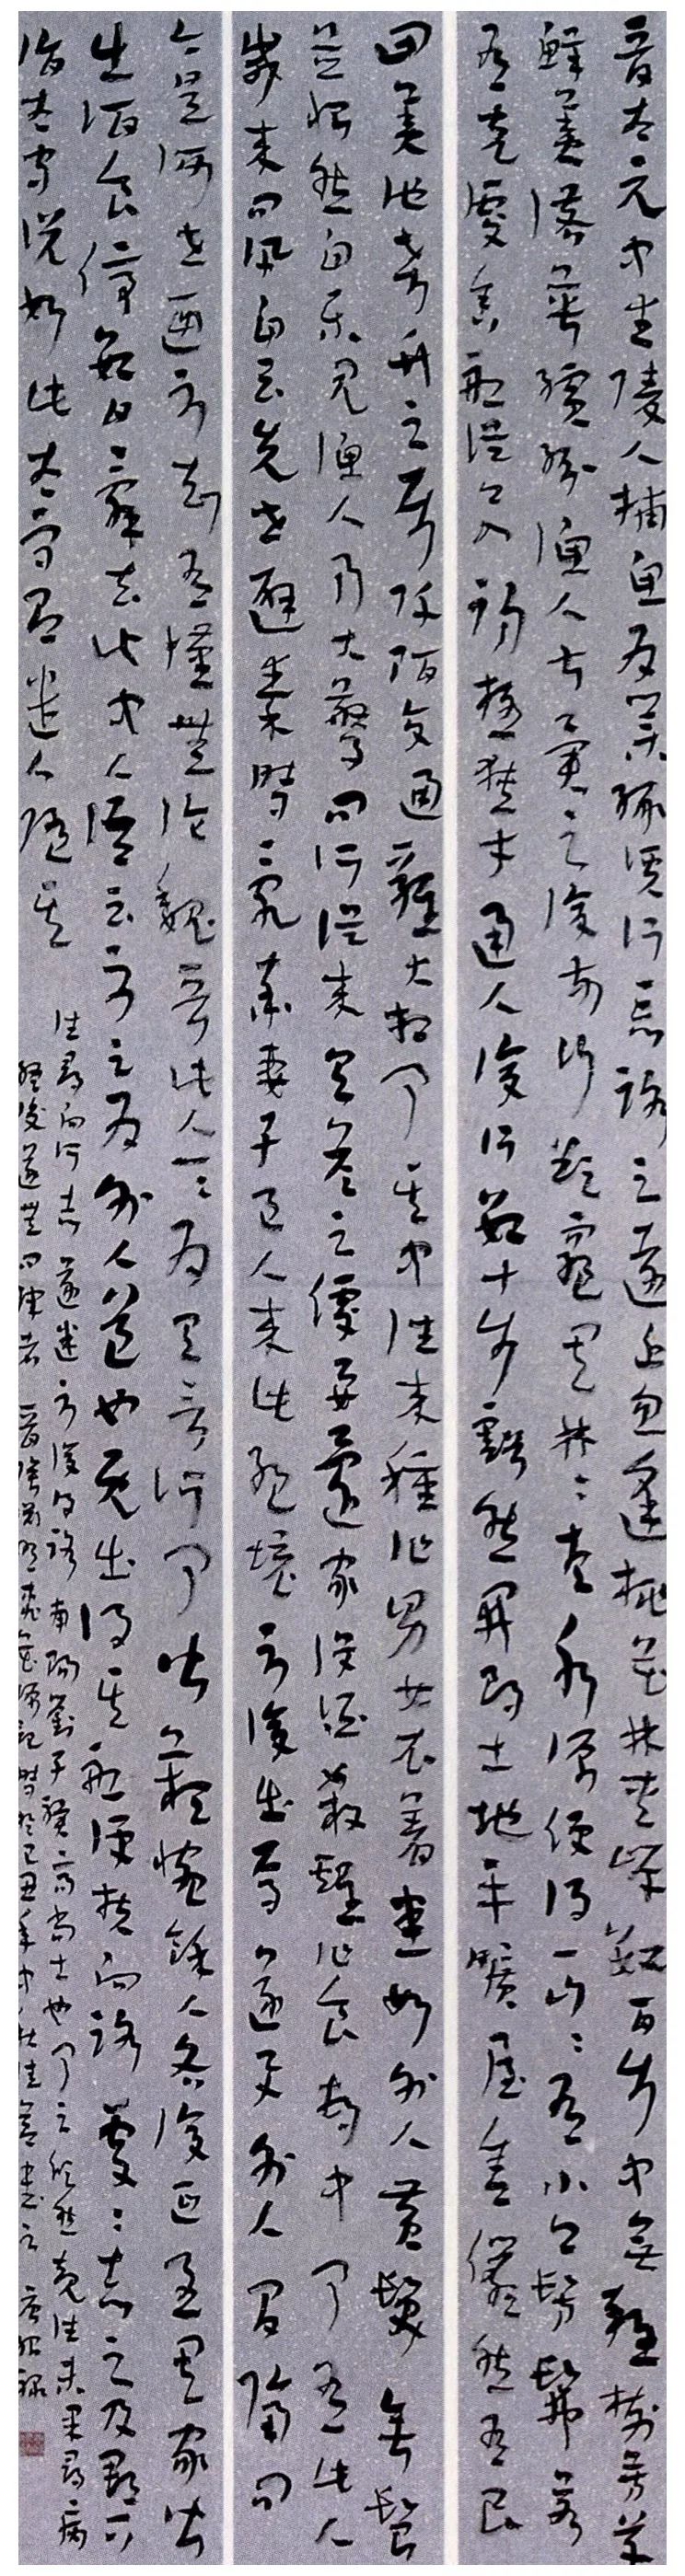 晉太元中武陵人捕魚為業緣溪行忘路之遠近忽逢桃花林夾岸數百步中無雜樹芳草
鮮美落英繽紛漁人甚異之復前行欲窮其林々盡水源便得一山々有小口髣髴若
有光便舍船從口入初極狹才通人復行數十步豁然開朗土地平曠屋舍儼然有良
田美池桑竹之屬阡陌交通雞犬相聞其中往來種作男女衣著悉如外人黃髮垂髫
並怡然自樂見漁人乃大驚問所從來具答之便要還家設酒殺雞作食村中聞有此人
咸來問訊自云先世避秦時亂率妻子邑人來此絕境不復出焉遂與外人間隔問
今是何世乃不知有漢無論魏晉此人一々為具言所聞皆歎惋餘人各復延至其家皆
出酒食停數日辭去此中人語云不足為外人道也既出得其船便扶向路處々誌之及郡下
詣太守說如此太守即遣人隨其
往尋向所誌遂迷不復得路南陽劉子驥高尚士也聞之欣然規往未果尋病
終後遂無問津者晉陶淵明桃花源記時於己丑年中秋佳節書之